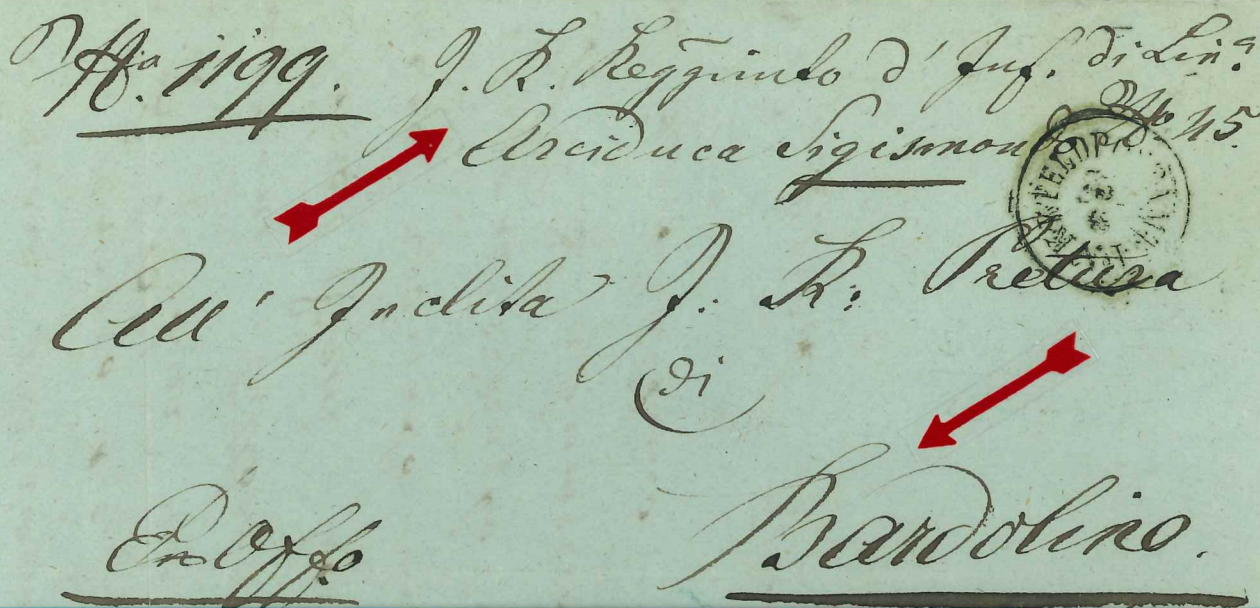 No. 1199. I. R. Reggimto d' Inf. di Lin.a
No 45.
Arciduca Sigismon
All' Inclita I. R. Pretura
di
Bardolino.
Ex Offo